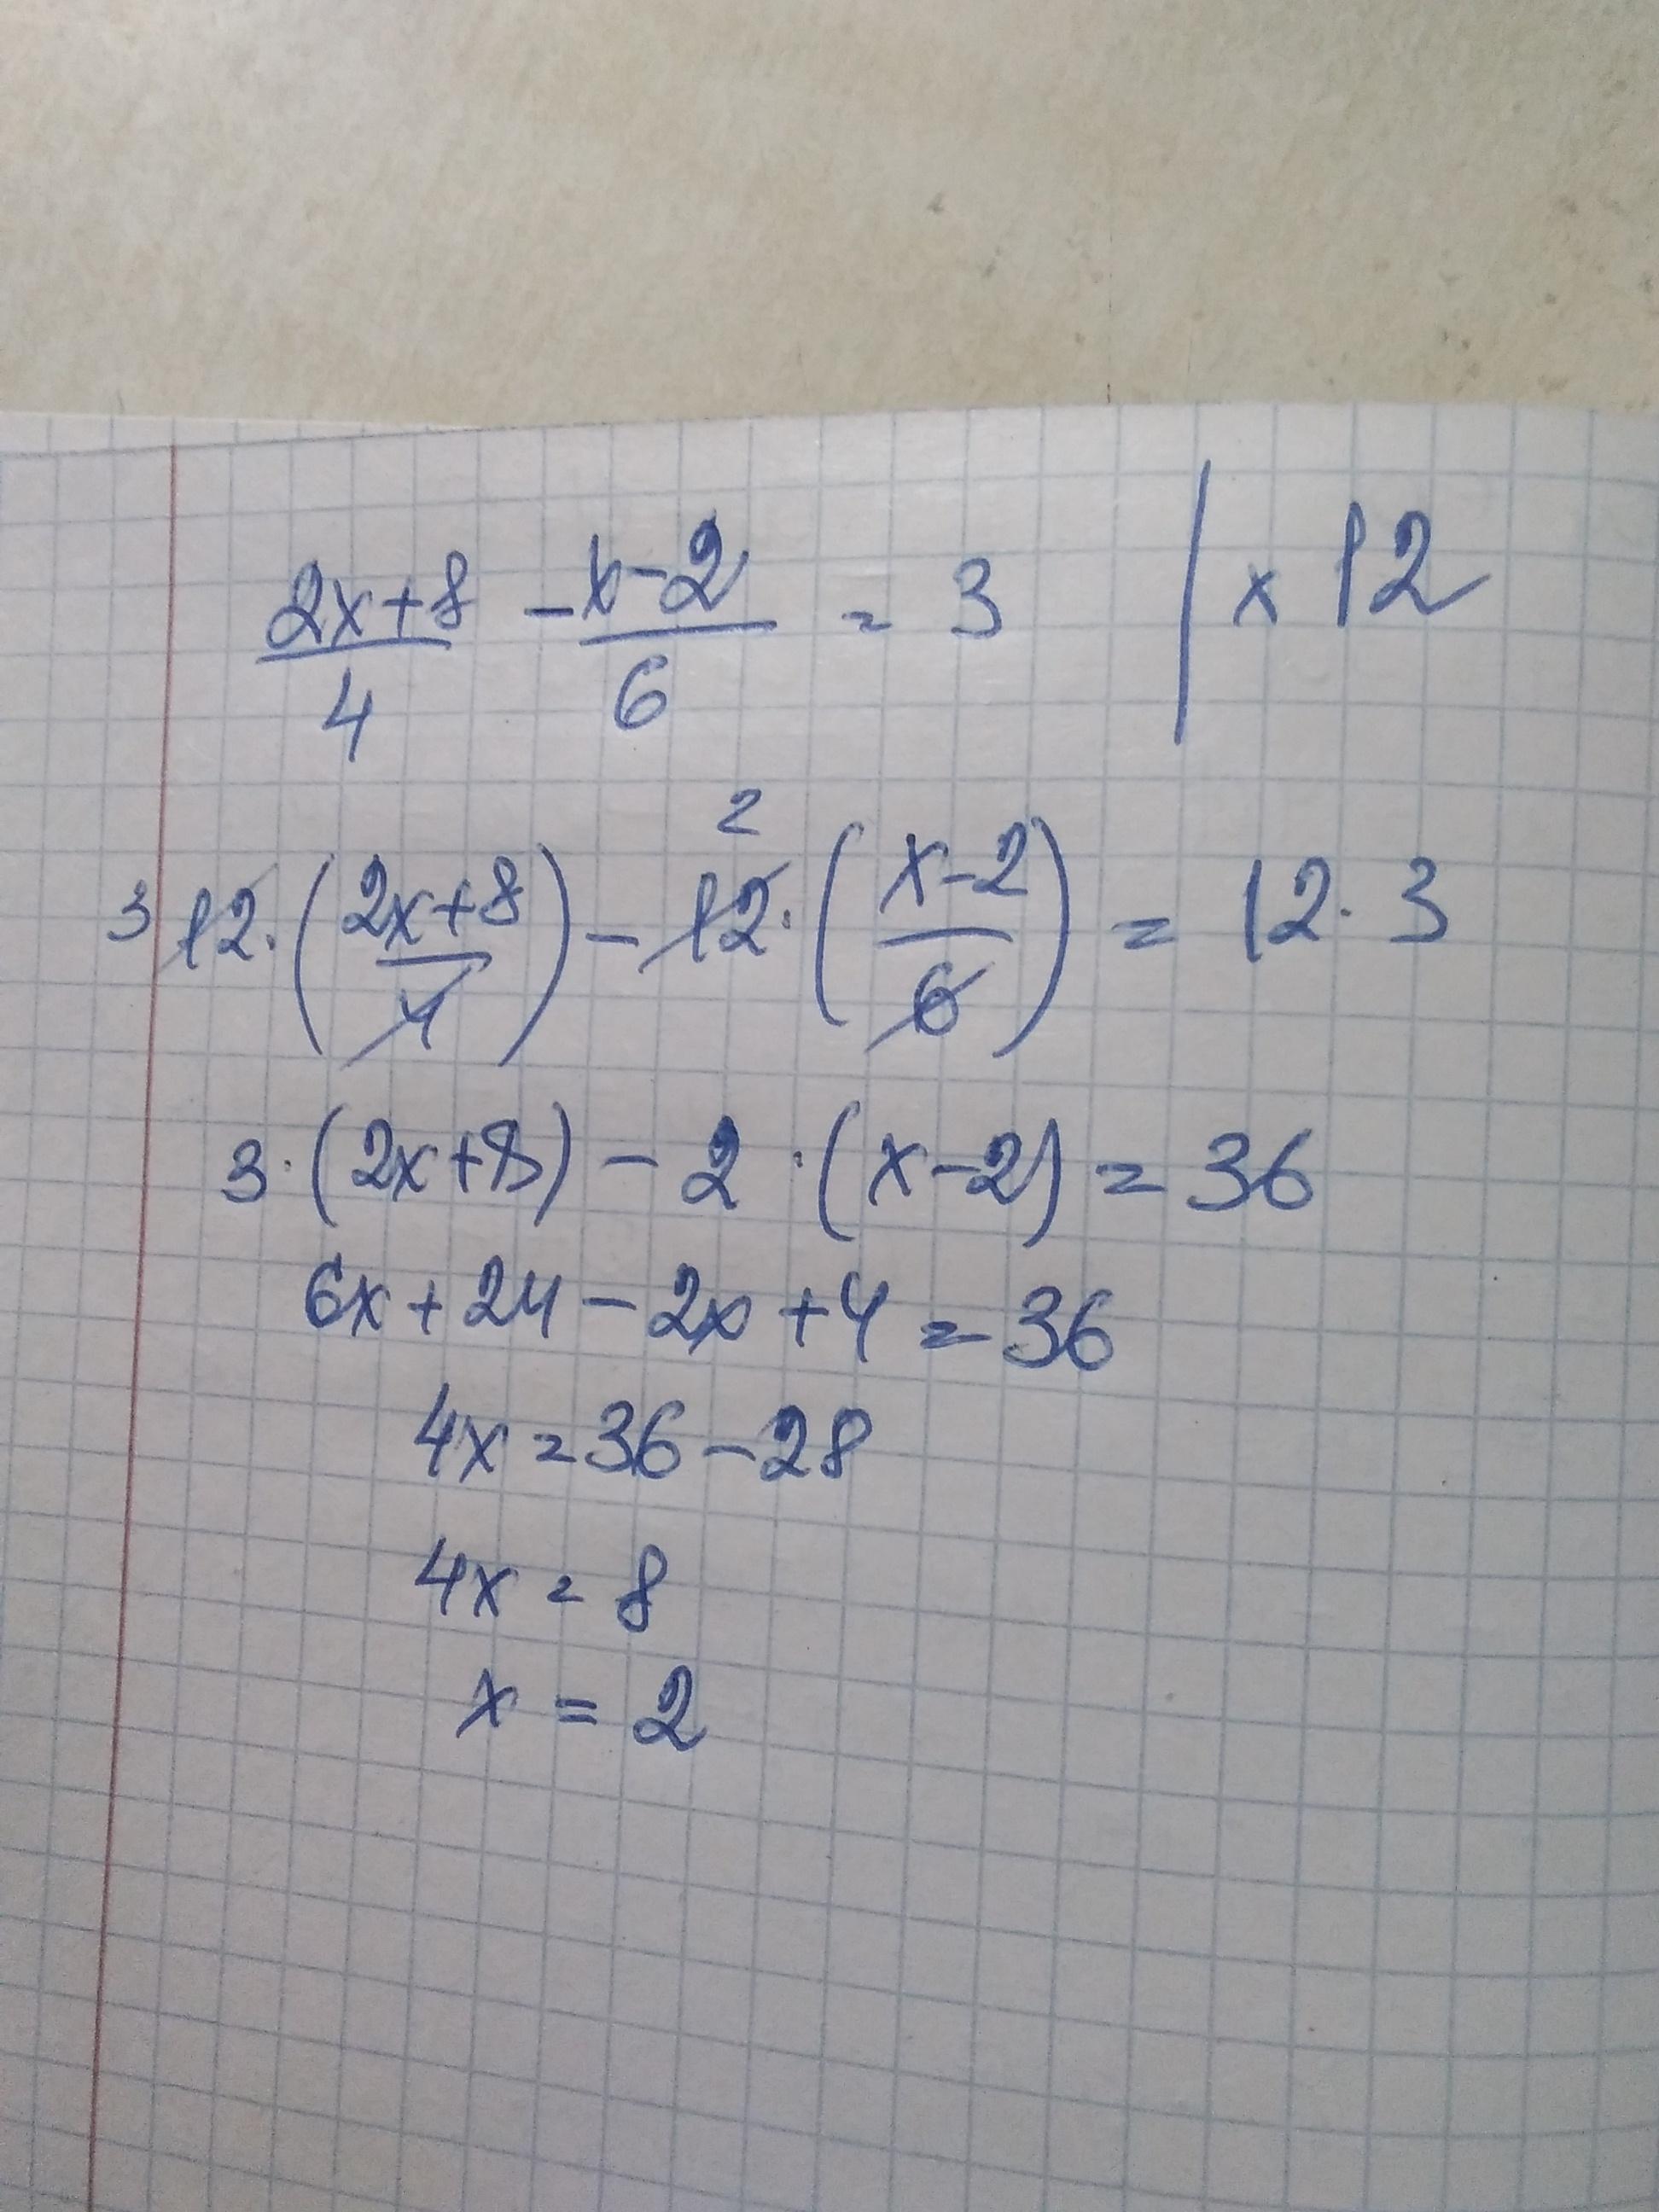 (2x+8)/4 - (x-2)/6 = 3 | x 12
3 12·((2x+8)/4) - 2 12·((x-2)/6) = 12·3
3·(2x+8) - 2·(x-2) = 36
6x+24-2x+4=36
4x=36-28
4x=8
x=2